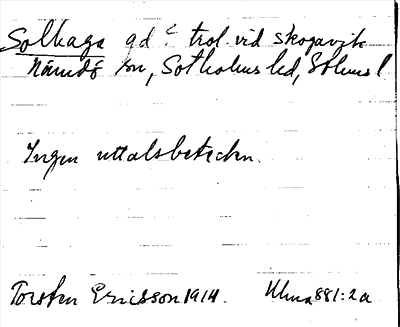 Solhaga gd? trol. vid Skogavik
Nämdö sn, Sotholms hd, Sthms l
Ingen uttalsbeteckn.
Torsten Ericsson 1914. Ulma 881:2a